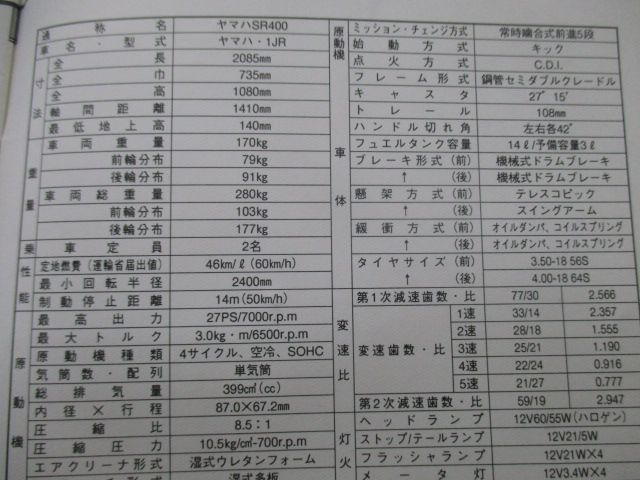 通称名 ヤマハSR400
車名・型式 ヤマハ・1JR
寸法
全長 2085mm
全巾 735mm
全高 1080mm
軸間距離 1410mm
最低地上高 140mm
重量
車両重量 170kg
前輪分布 79kg
後輪分布 91kg
車両総重量 280kg
前輪分布 103kg
後輪分布 177kg
乗車定員 2名
性能
定地燃費(運輸省届出値) 46km/ℓ(60km/h)
最小回転半径 2400mm
制動停止距離 14m(50km/h)
原動機
最高出力 27PS/7000r.p.m
最大トルク 3.0kg・m/6500r.p.m
原動機種類 4サイクル、空冷、SOHC
気筒数・配列 単気筒
総排気量 399cm³(cc)
内径×行程 87.0×67.2mm
圧縮比 8.5:1
圧縮圧力 10.5kg/cm²-700r.p.m
エアクリーナ形式 湿式ウレタンフォーム
湿式多板
原動機
ミッション・チェンジ方式 常時噛合式前進5段
始動方式 キック
点火方式 C.D.I.
車体
フレーム形式 鋼管セミダブルクレードル
キャスタ 27°15′
トレール 108mm
ハンドル切れ角 左右各42°
フュエルタンク容量 14ℓ/予備容量3ℓ
ブレーキ形式(前) 機械式ドラムブレーキ
↑(後) 機械式ドラムブレーキ
懸架方式(前) テレスコピック
↑(後) スイングアーム
緩衝方式(前) オイルダンパ、コイルスプリング
↑(後) オイルダンパ、コイルスプリング
タイヤサイズ(前) 3.50-18 56S
↑(後) 4.00-18 64S
変速比
第1次減速歯数・比 77/30 2.566
変速歯数・比
1速 33/14 2.357
2速 28/18 1.555
3速 25/21 1.190
4速 22/24 0.916
5速 21/27 0.777
第2次減速歯数・比 59/19 2.947
灯火
ヘッドランプ 12V60/55W(ハロゲン)
ストップ/テールランプ 12V21/5W
フラッシャランプ 12V21W×4
メータ灯 12V3.4W×4